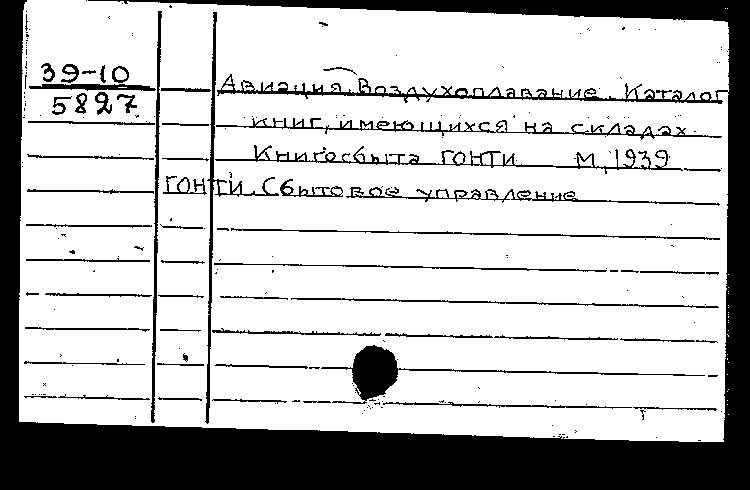 39-10
5827
Авиация. Воздухоплавание. Каталог
книг, имеющихся на складах
Книгосбыта ГОНТИ М, 1939
ГОНТИ. Сбытовое управление